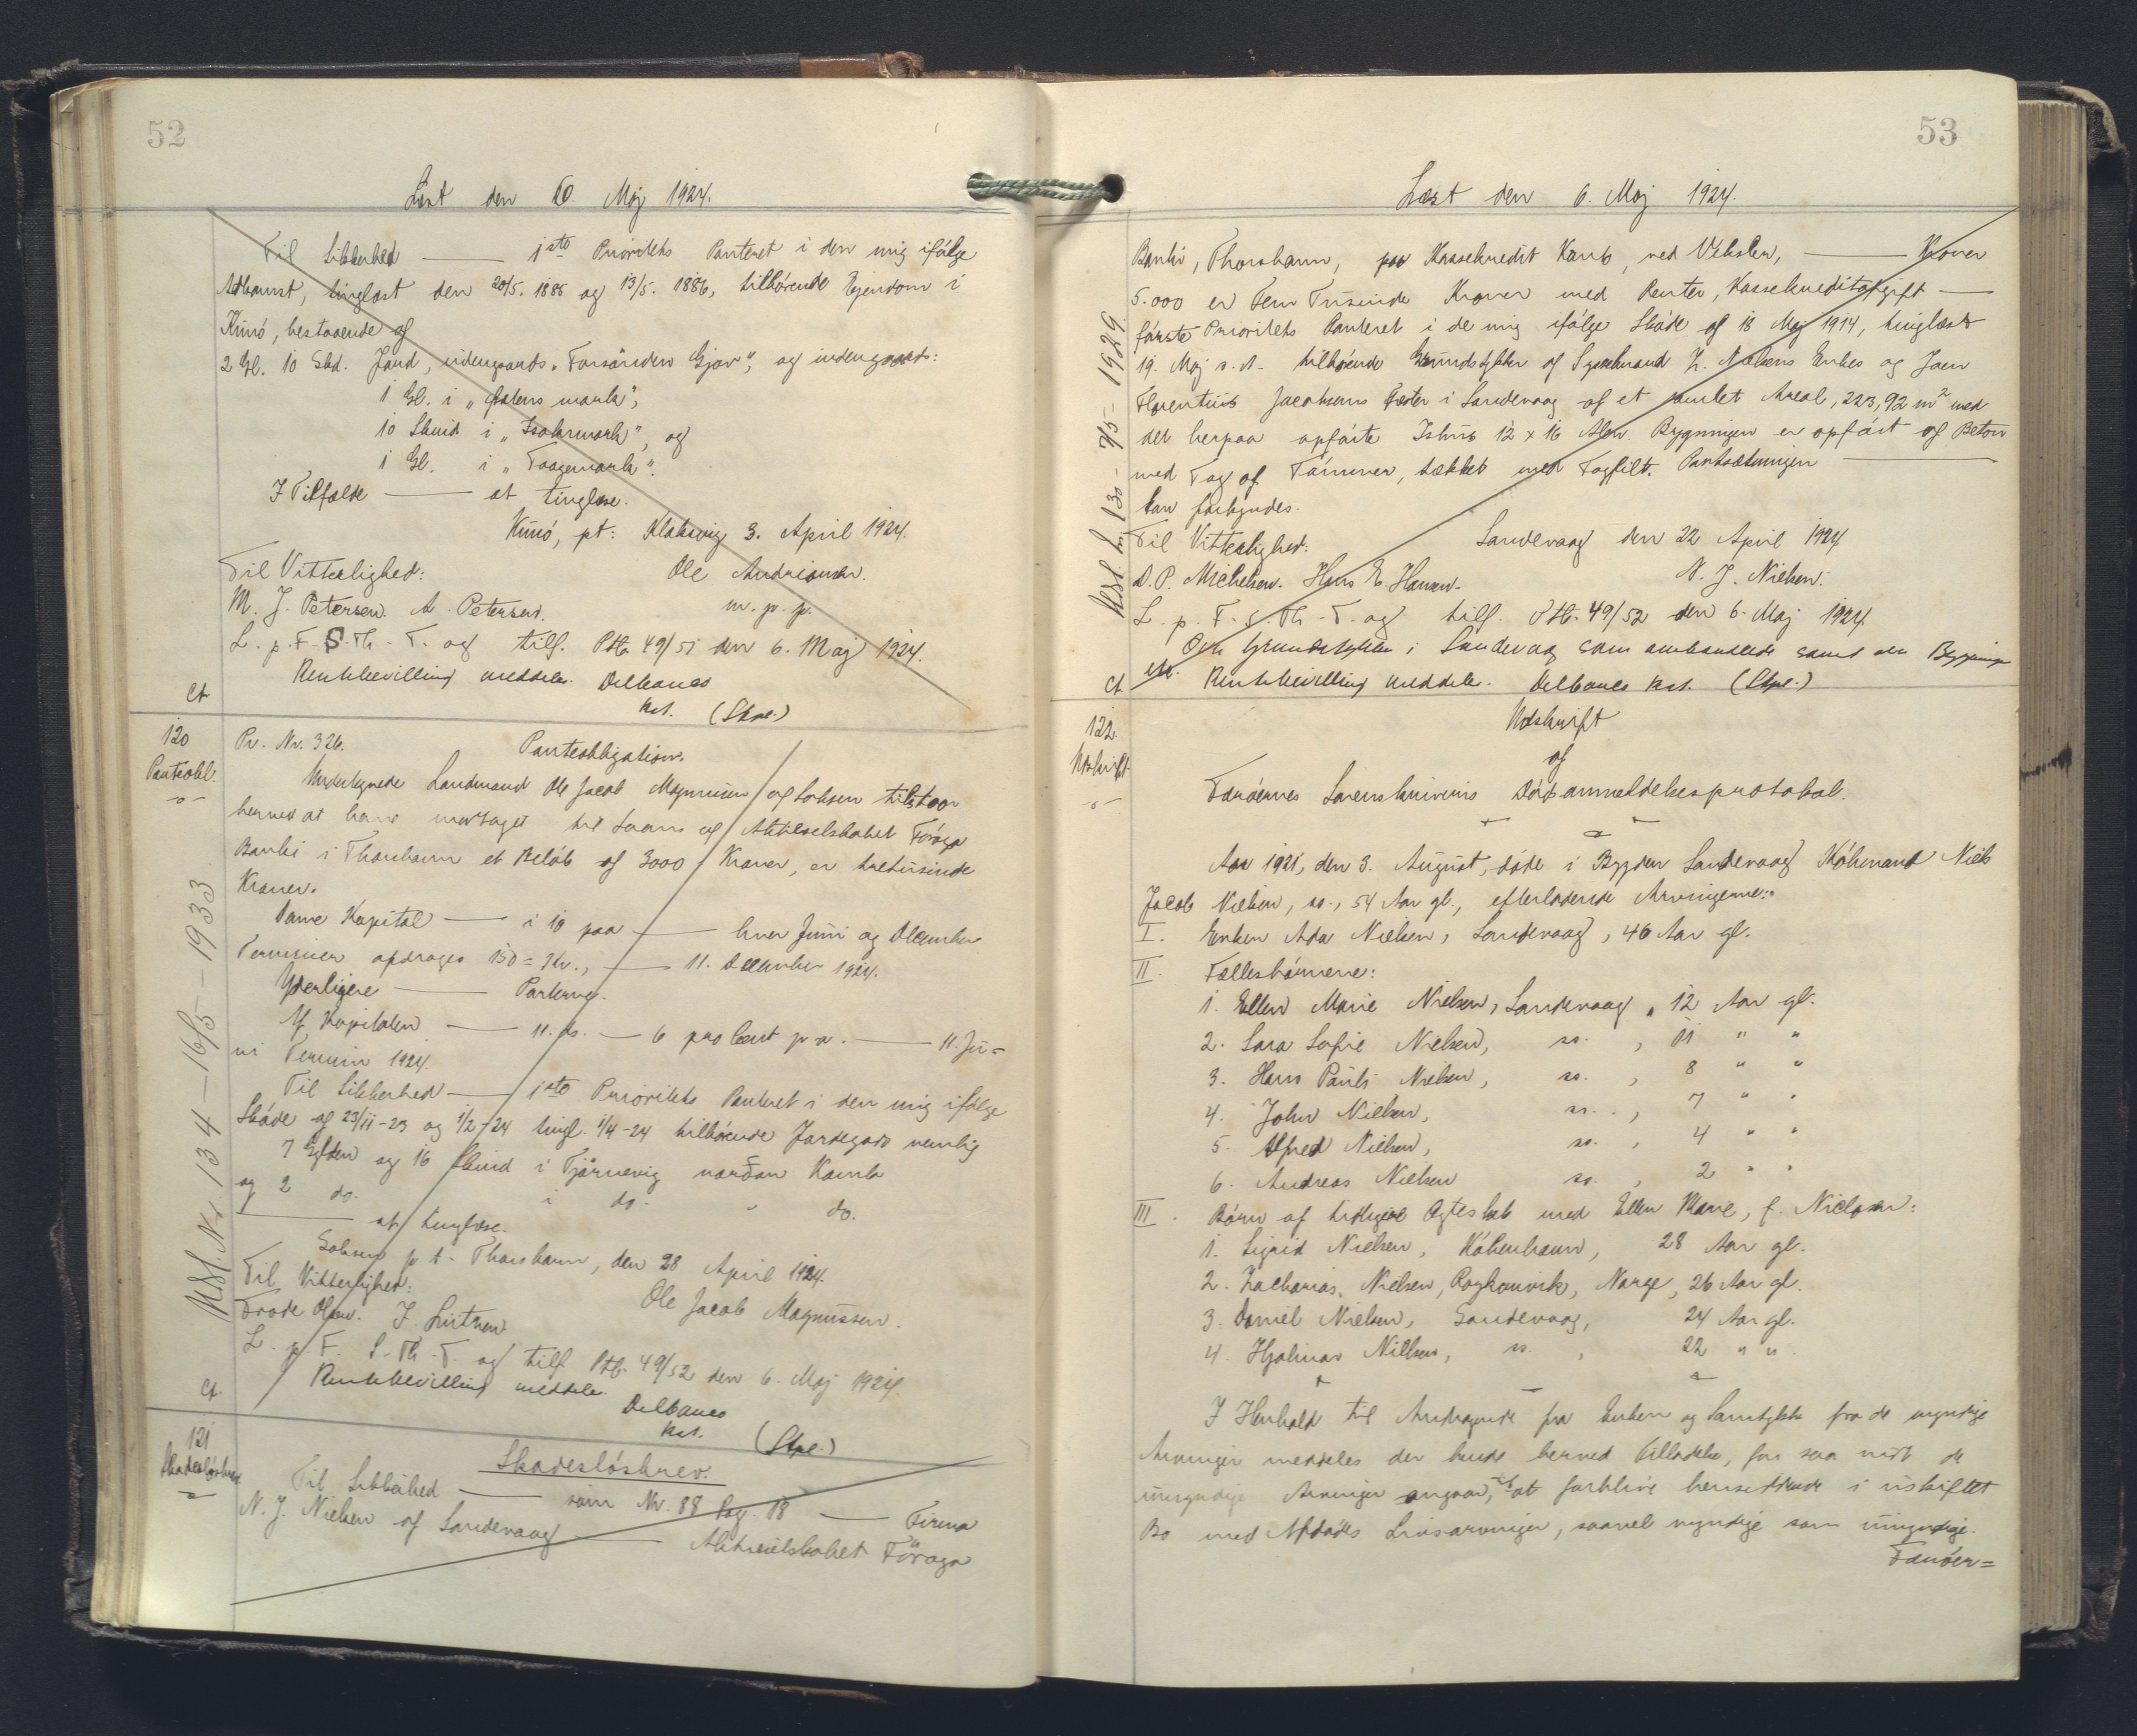 52
Læst den 6. Maj 1924.
Til Sikkerhed — 1ste Prioritets Panteret i den mig ifølge
Adkomst, tinglæst den 20/5. 1885 og 13/5. 1886, tilhørende Ejendom i
Kunø, bestaaende af
2 Gl. 10 Skd. Jord, udengaards og indengaards:
1 Gl. i
10 Skind i og
1 Gl. i
I Tilfælde — at tinglæse.
Kunø, pt: Klaksvig 3. April 1924.
Til Vitterlighed: Ole Andreasen.
M. J. Petersen. A. Petersen. m. p. p.
L. p. F. S. Th. T. og tilf. Ptb. 49/51 den 6. Maj 1924.
Rentebevilling meddeles. Delbanco
Ct. kst. (Stpl.)
120 Pr. Nr. 326. Panteobligation.
Panteobl. Undertegnede Landmand Ole Jacob Magnussen af Saksen tilstaar
herved at have modtaget til Laans af Aktieselskabet Föroya
Banki i Thorshavn et Beløb af 3000 Kroner, er tretusinde
Kroner.
Denne Kapital — i 10 paa — hver Juni og December
Terminer afdrages 150 = Kr., — 11. December 1924.
Yderligere — Parterne.
Af Kapitalen — 11. ds. — 6 pro Cent p. a. — 11. Ju=
ni Termin 1924.
Til Sikkerhed — 1ste Prioritets Panteret i den mig ifølge
Skøde af 23/11-23 og 1/2-24 tingl. 1/4-24 tilhørende Jordegods nemlig
7 Gylden og 16 Skind i Tjørnevig norðan Kamb
og 2 do. i do. " do.
— at tinglæse.
Saksen p t. Thorshavn, den 28 April 1924.
Til Vitterlighed: Ole Jacob Magnussen.
Frode Olsen. J. Lützen
L. p. F. S. Th. T. og tilf. Ptb. 49/52 den 6. Maj 1924.
Rentebevilling meddeles.
Ct. Delbanco
kst. (Stpl.)
Udsl. Nr. 134 — 16/5 — 1933
121 Skadesløsbrev.
Skadesløsbrev Til Sikkerhed — som Nr. 88 Pag. 18 — Firma
N. J. Nielsen af Sandevaag — Aktieselskabet Föroya
53
Læst den 6. Maj 1924.
Banki, Thorshavn, paa Kassekredit Konto, ved Veksler, — Kroner
5.000 er Fem Tusinde Kroner med Renter, Kassekreditafgift —
første Prioritets Panteret i de mig ifølge Skøde af 18 Maj 1914, tinglæst
19. Maj s. A. tilhørende Grundstykker af Sysselmand Z. Nielsens Enkes og Joen
Florentius Jacobsens Fæster i Sandevaag af et samlet Areal, 223,92 m² med
det herpaa opførte Ishus 12 x 16 Alen. Bygningen er opført af Beton
med Tag af Tømmer, tækket med Tagfilt. Pantsætningen —
kan forkyndes.
Til Vitterlighed: Sandevaag den 22 April 1924
D. P. Michelsen. Hans E. Hansen. N. J. Nielsen.
L. p. F. S. Th. T. og tilf. Ptb. 49/52 den 6. Maj 1924.
Grundstykker i Sandevaag som ombundede samt Bygninger
Ct. Rentebevilling meddeles. Delbanco kst. (Stpl.)
Udsl. Nr. 130 - 7/5 - 1929
122. Udskrift
Udskrift. af
Færøernes Sorenskriveris Dødsanmeldelsesprotokol.
Aar 1921, den 3. August, døde i Bygden Sandevaag Købmand Niels
Jacob Nielsen, ss., 54 Aar gl., efterladende Arvingerne:
I. Enken Ada Nielsen, Sandevaag, 46 Aar gl.
II. Fællesbørnene:
1. Ellen Marie Nielsen, Sandevaag, 12 Aar gl.
2. Sara Sofie Nielsen, ss. , 11 " "
3. Hans Pauli Nielsen, ss. , 8 " "
4. John Nielsen, ss. , 7 " "
5. Alfred Nielsen, ss. , 4 " "
6. Andreas Nielsen ss. , 2 " "
III. Børn af tidligere Ægteskab med Ellen Marie, f. Niclasen:
1. Sigrid Nielsen, København, 28 Aar gl.
2. Zacharias Nielsen, Norge, 26 Aar gl.
3. Daniel Nielsen, Sandevaag, 24 Aar gl.
4. Hjalmar Nielsen, ss. , 22 " "
I Henhold til Andragende fra Enken og Samtykke fra de myndige
Arvinger meddeles der hende herved Tilladelse, for saa vidt de
umyndige Arvinger angaar, til at forblive hensiddende i uskiftet
Bo med Afdødes Livsarvinger, saavel myndige som umyndige.
Færøer=